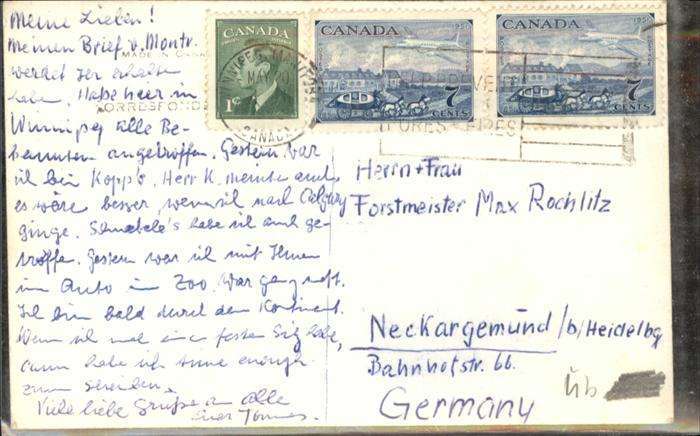 Meine Lieben!
Meinen Brief v. Montr.
werdet Ihr erhalten
haben. Habe hier in
Winnipeg alle Be-
kannten angetroffen. Gestern war
ich bei Kopp's. Herr K. meinte auch
es wäre besser, wenn ich nach Calgary
ginge. 's habe ich auch ge-
troffen. Gestern war ich mit Ihnen
im Auto im Zoo. War ganz nett.
Ich bin bald durch den Kontinent.
Wenn ich mal einen festen Sitz habe,
dann habe ich time enough
zum schreiben.
Viele liebe Grüsse an alle
Euer
MADE IN CANADA
CORRESPOND
CANADA
POSTES POSTAGE
1¢
WINNIPEG
MAY
CANADA
CANADA
1951
7
CENTS
CANADA
1951
7
CENTS
HELP PREVENT
FIRES
Herrn + Frau
Forstmeister Max Rochlitz
Neckargemünd /b/Heidelbg
Bahnhofstr. 66.
Germany